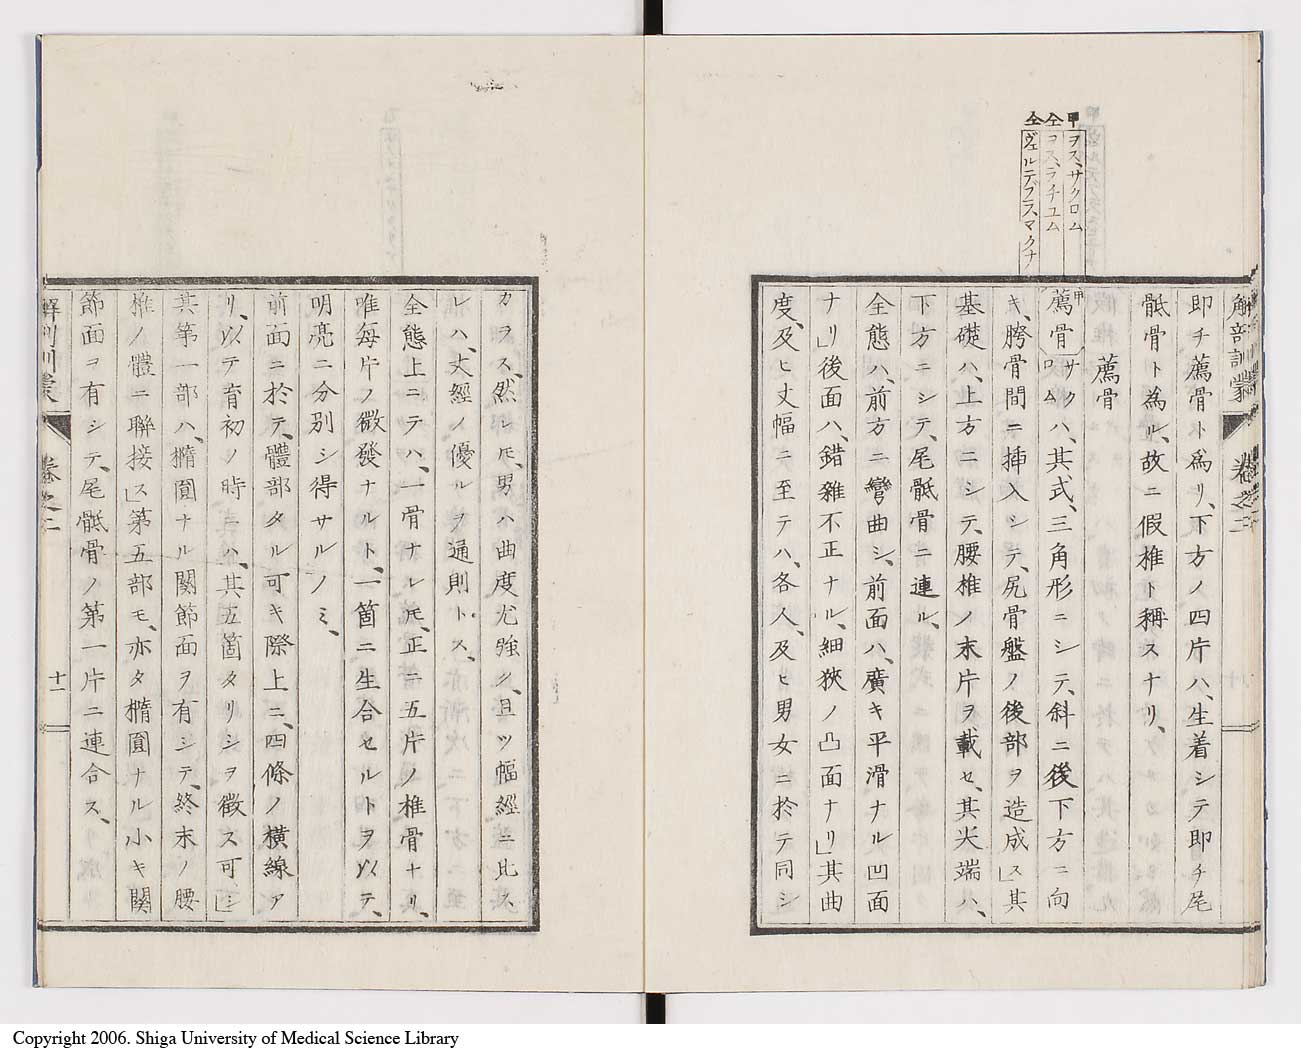 甲ヲス、サクロム
仝ヲス、ラチユム
仝ヴェルテブラスマグナ
解剖訓蒙 卷之二
即チ薦骨ト爲リ、下方ノ四片ハ、生着シテ即チ尾
骶骨ト為ル、故ニ假椎ト稱スナリ、
薦骨
薦骨サクロムハ、其式、三角形ニシテ、斜ニ後下方ニ向
キ、胯骨間ニ挿入シテ、尻骨盤ノ後部ヲ造成ス」其
基礎ハ、上方ニシテ、腰椎ノ末片ヲ載セ、其尖端ハ、
下方ニシテ、尾骶骨ニ連ル、
全態ハ、前方ニ彎曲シ、前面ハ、廣キ平滑ナル凹面
ナリ」後面ハ、錯雜不正ナル、細狹ノ凸面ナリ」其曲
度、及ヒ丈幅ニ至テハ、各人、及ヒ男女ニ於テ同シ
カラス、然レ𪜈、男ハ曲度尤強ク、且ツ幅經ニ比ス
レハ、丈經ノ優ルヲ通則トス、
全態上ニテハ、一骨ナレ𪜈、正ニ五片ノ椎骨ナリ、
唯每片ノ徴發ナルト、一箇ニ生合セルトヲ以テ、
明亮ニ分別シ得サルノミ、
前面ニ於テ、體部タル可キ際上ニ、四條ノ横線ア
リ、以テ育初ノ時ニハ、其五箇タリシヲ徴ス可シ」
其第一部ハ、橢圓ナル關節面ヲ有シテ、終末ノ腰
椎ノ體ニ聯接ス」第五部モ、亦タ橢圓ナル小キ關
節面ヲ有シテ、尾骶骨ノ第一片ニ連合ス、
解剖訓蒙 卷之二 十一
Copyright 2006. Shiga University of Medical Science Library